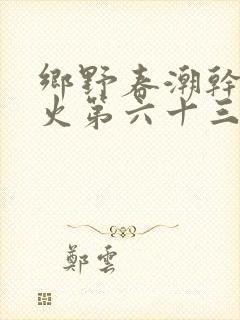 鄉野春潮幹
火第六十三
鄭雲